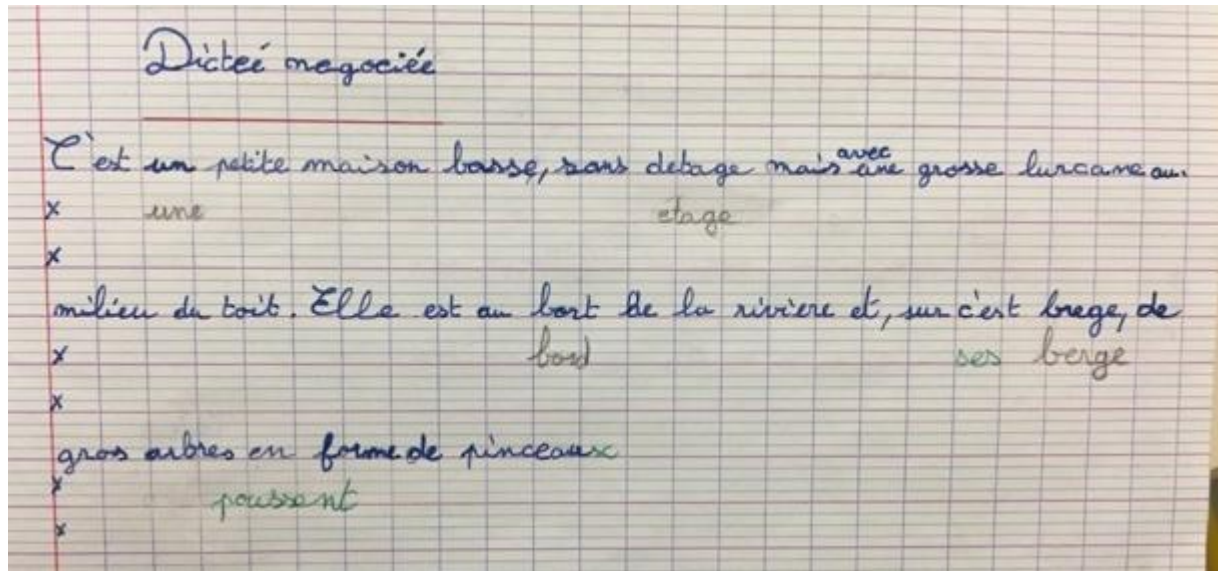 Dicteé negociée
C'est un petite maison basse, sans detage mais avec une grosse lurcane au
une etage
milieu du toit. Elle est au bort de la rivière et, sur c'est brege, de
bord ses berge
gros arbres en forme de pinceaux
poussent